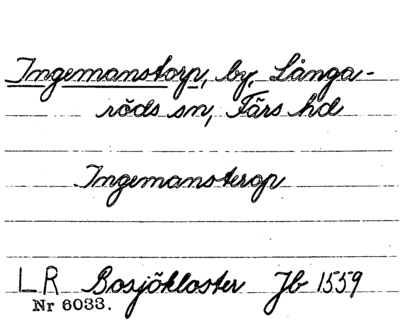 Ingemanstorp, by, Långa-
röds sn, Färs hd
Ingemansterop
LR Bosjökloster Jb 1559
Nr 6033.